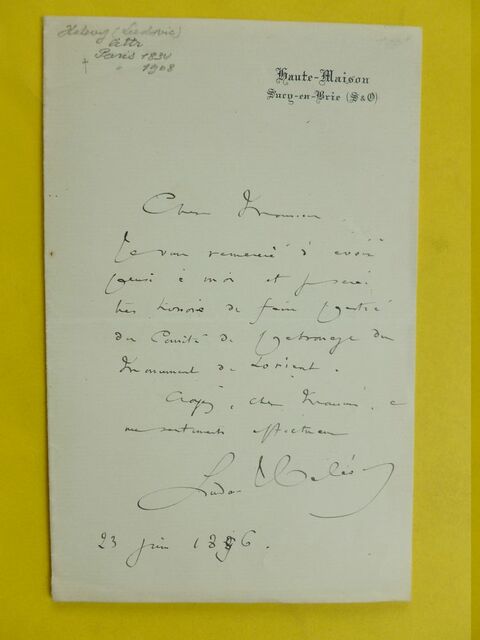 Halevy (Ludovic)
Paris 1834
† " 1908
Haute-Maison
Sucy-en-Brie (S&O)
Cher Monsieur
Je vous remercie d'avoir
pensé à moi et serai
très honoré de faire partie
du Comité de patronage du
Monument de Lorient.
Croyez, cher Monsieur, à
mes sentiments affectueux
Ludovic Halévy
23 juin 1896.